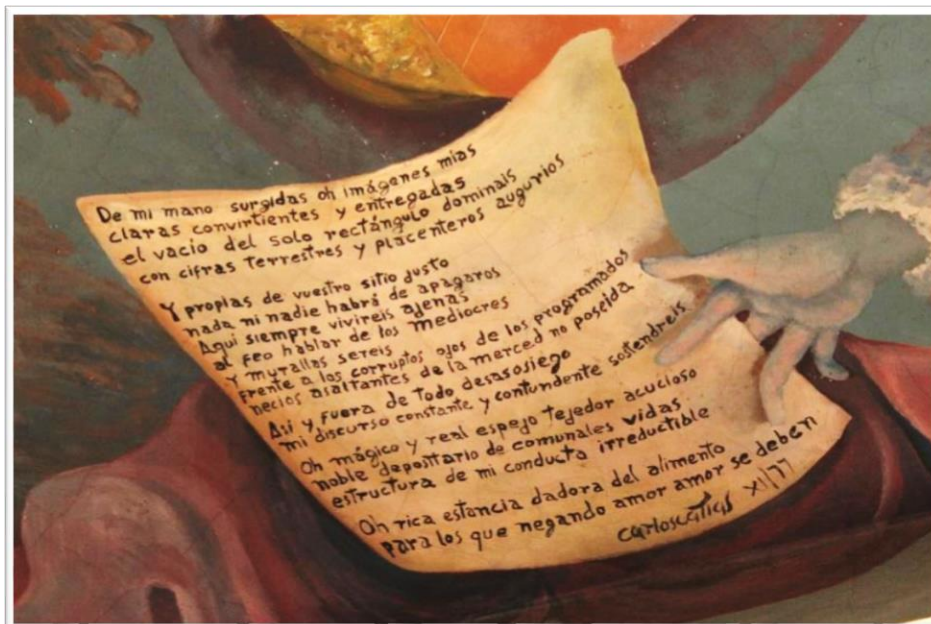 De mi mano surgidas oh imágenes mias
claras convirtientes y entregadas
el vacío del solo rectángulo dominais
con cifras terrestres y placenteros augurios
Y propias de vuestro sitio justo
nada ni nadie habrá de apagaros
Aqui siempre vivireis ajenas
al feo hablar de los mediocres
Y murallas sereis
frente a los corruptos ojos de los programados
necios asaltantes de la merced no poseida
Asi y fuera de todo desasosiego
mi discurso constante y contundente sostendreis
Oh mágico y real espejo tejedor acucioso
noble depositario de comunales vidas
estructura de mi conducta irreductible
Oh rica estancia dadora del alimento
para los que negando amor amor se deben
XI/77